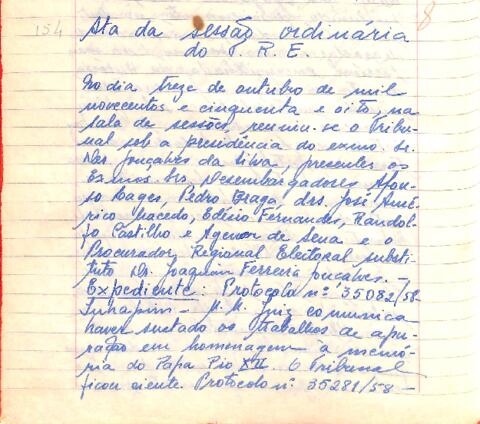 154
8
Ata da sessão ordinária
do T. R. E.
No dia treze de outubro de mil
novecentos e cinquenta e oito, na
sala de sessões, reuniu-se o Tribu-
nal sob a presidência do exmo. sr.
Des. Gonçalves da Silva, presentes os
Exmos. Srs. Desembargadores Afon-
so Lages, Pedro Braga, drs. José Amé-
rico Macedo, Edésio Fernandes, Randol-
fo Castilho e Agenor de Sena e o
Procurador Regional Eleitoral substi-
tuto Dr. Joaquim Ferreira Gonçalves. -
Expediente: Protocolo nº 35082/58-
Inhapim - M. M. Juiz comunica
haver sustado os trabalhos de apu-
ração em homenagem à memó-
ria do Papa Pio XII. O Tribunal
ficou ciente. Protocolo nº 35281/58 -